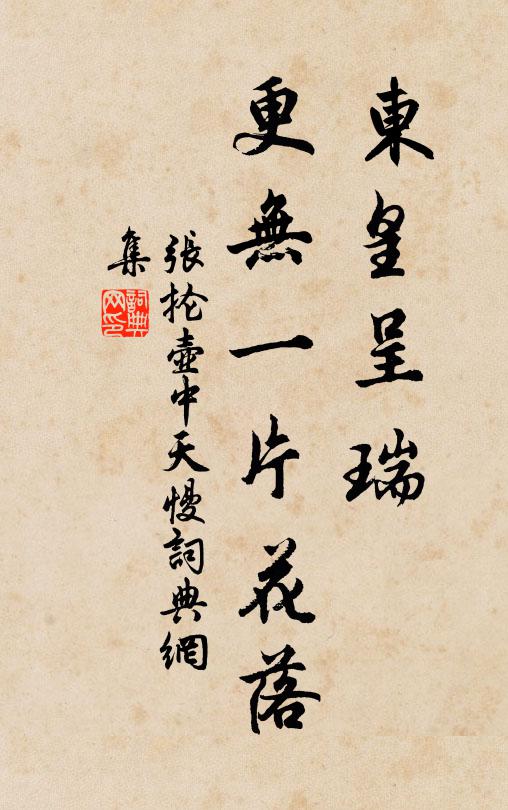 東皇呈瑞
更無一片花落
張掄壺中天慢詞典網
集
詞典
网印